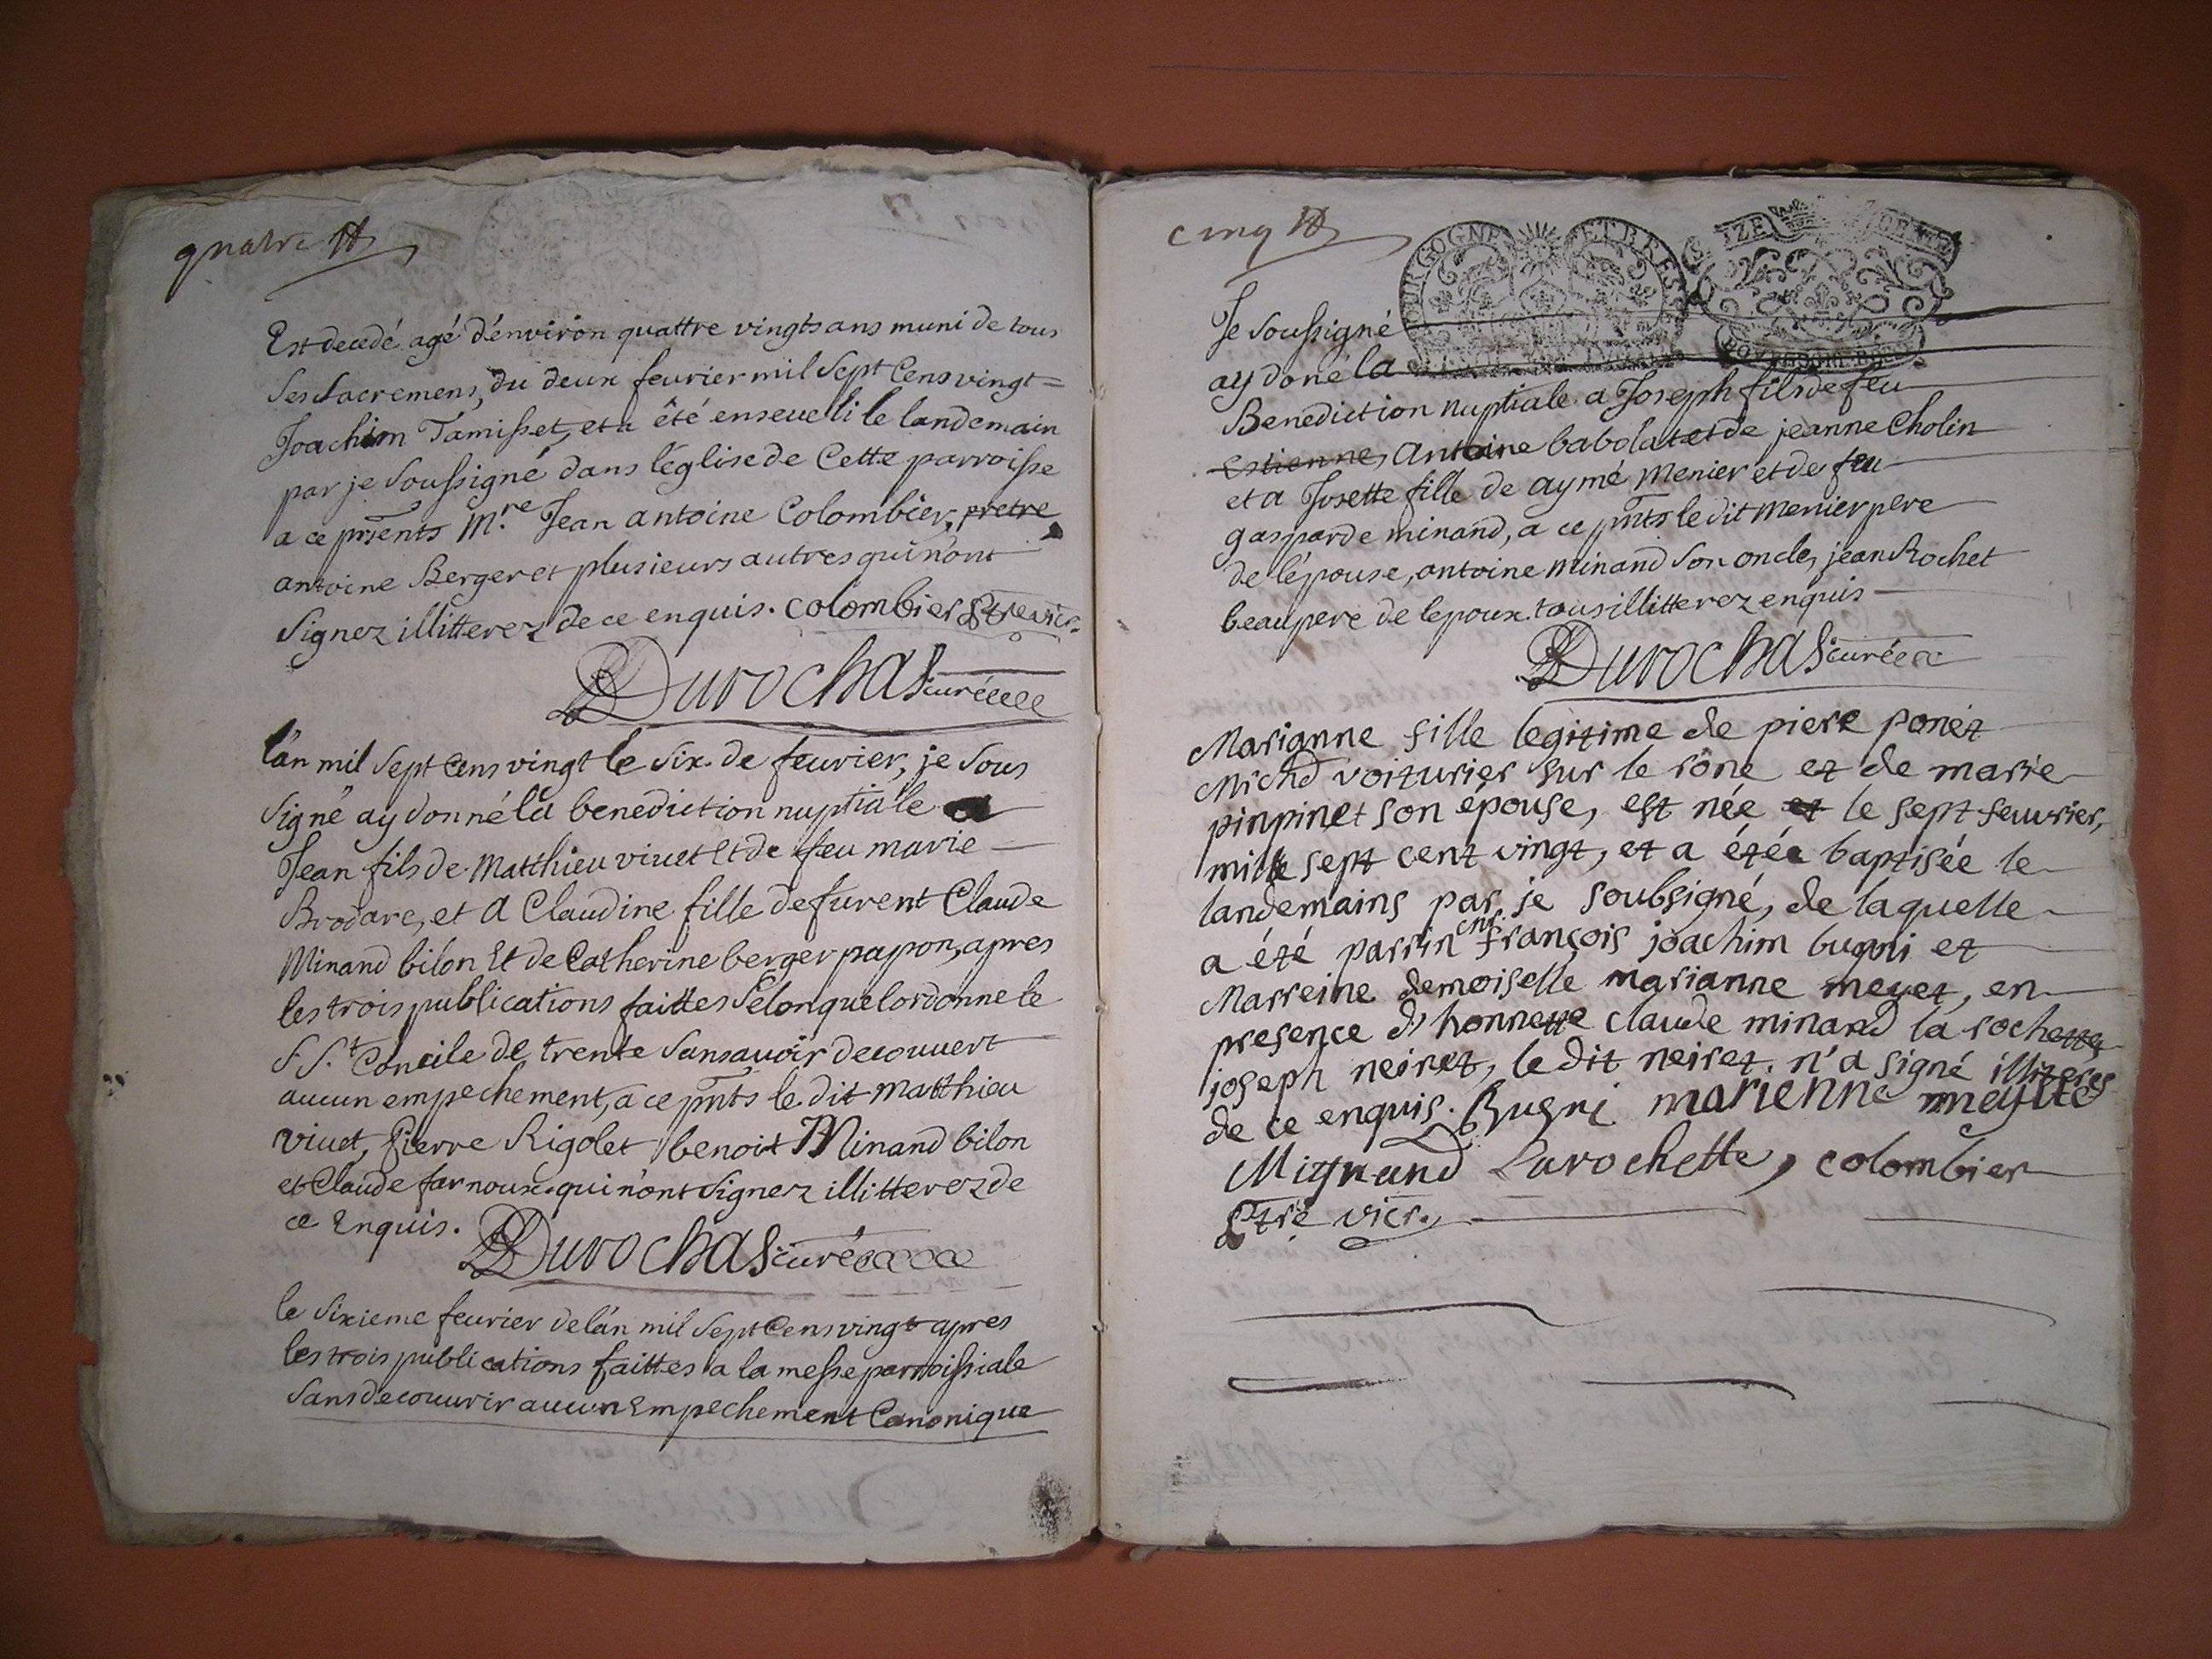 quatre
Est decedé agé d'environ quattre vingts ans muni de tous
ses sacremens, du deux feurier mil sept Cens vingt =
Joachim Tamisset, et a été enseueli le landemain
par je soussigné dans l'églisede Cette parroisse
a ce prñts M.re Jean antoine Colombier, pretre
antoine Berger et plusieurs autres qui n'ont
signez illitterez de ce enquis. colombier ptre vicr.
Durochas curé
l'an mil sept Cens vingt le six de feurier, je sous
signé ay donné la benediction nuptiale a
Jean fils de Matthieu viuet et de feu marie
Brodare, et a Claudine fille defurent Claude
Minand bilon Et de Catherine berger papon, apres
les trois publications faittes selon que l'ordonne le
S.t Concile de trente sans auoir decouuert
aucun empechement, a ce pñts le dit Matthieu
viuet, Pierre Rigolet benoit Minand bilon
et Claude farnoux. qui n'ont signez illitterez de
ce Enquis.
Durochas curé
le sixieme feurier de l'an mil sept Cens vingt apres
les trois publications faittes a la messe parroissiale
sans decouurir aucun Empechement Canonique
cinq
BOURGOGNE ET BRESSE
Je soussigné
ay doné la
Benediction nuptiale a Joseph fils de feu
Estienne, Antoine babolat et de jeanne Cholin
et a Josette fille de aymé Menier et de feu
gasparde minand, a ce pñts le dit Menier pere
de l'épouse, antoine minand son oncle, jean Rochet
beaupere de lepoux. tous illitterez enquis
Durochas curé
Marianne fille legitime de piere ponet
Mrchd voiturier sur le rône et de marie
pinpinet son épouse, est née et le sept feuvrier,
mille sept cent vingt, et a étée baptisée le
landemains par je soubsigné, de laquelle
a été parrin françois joachim bugni et
Marreine demoiselle marianne meyet, en
presence d'honnette claude minand la rochette
joseph neiret, le dit neiret. n'a signé illiteres
de ce enquis. Bugni marienne
Mignand Larochette, colombier
ptre vicr.